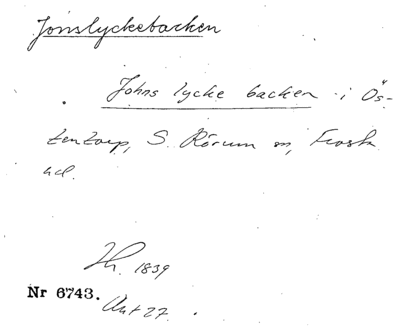 Jonslyckebacken
Johns lycke backen i Ös-
tentorp, S. Rörum sn, Frosta
hd.
Th. 1839
Nr 6743.
Ant 27.